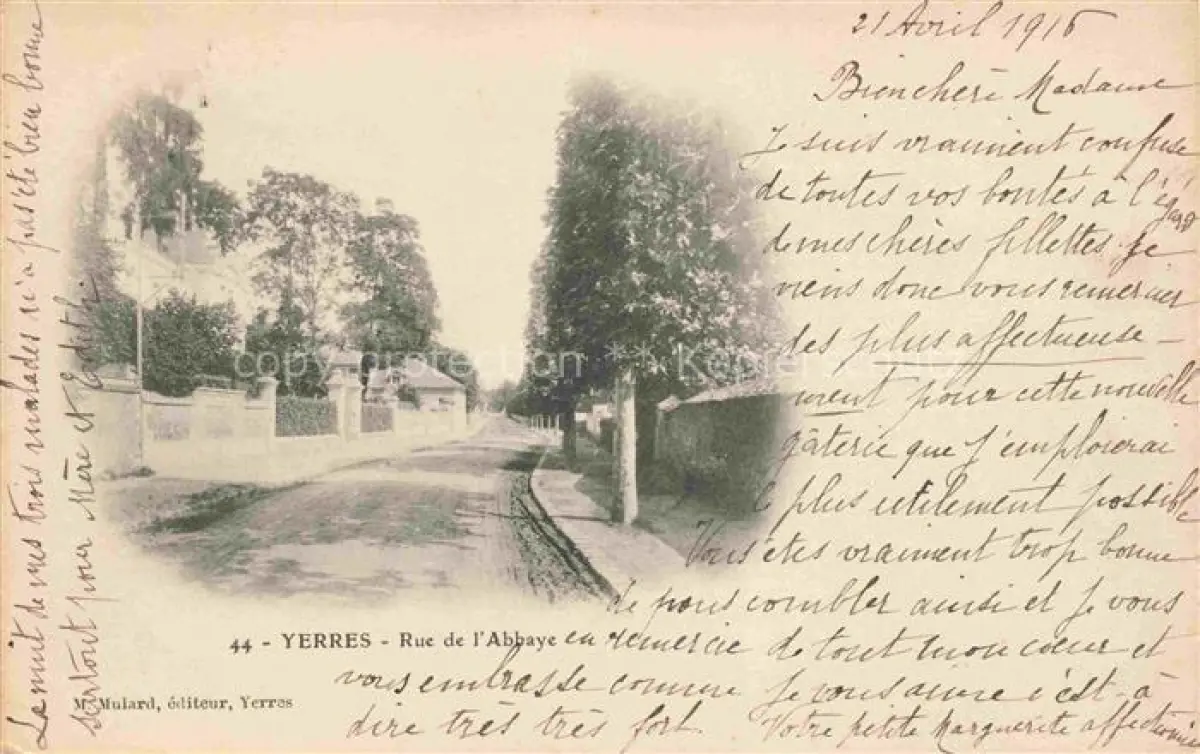 21 Avril 1916
Bien chère Madame
Je suis vraiment confuse
de toutes vos bontés à l'égard
de mes chères fillettes. je
viens donc vous remercier
des plus affectueuse-
ment pour cette nouvelle
gâterie que j'emploierai
le plus utilement possible
Vous êtes vraiment trop bonne
de nous combler ainsi et je vous
en remercie de tout mon cœur et
vous embrasse comme je vous aime c'est-à
dire très très fort.
Votre petite Marguerite affectionnée
La nuit de nos trois malades n'a pas été bien bonne
surtout pour Mère et Edith.
44 - YERRES - Rue de l'Abbaye
M. Mulard, éditeur, Yerres
copy protection ** Kopierschutz **